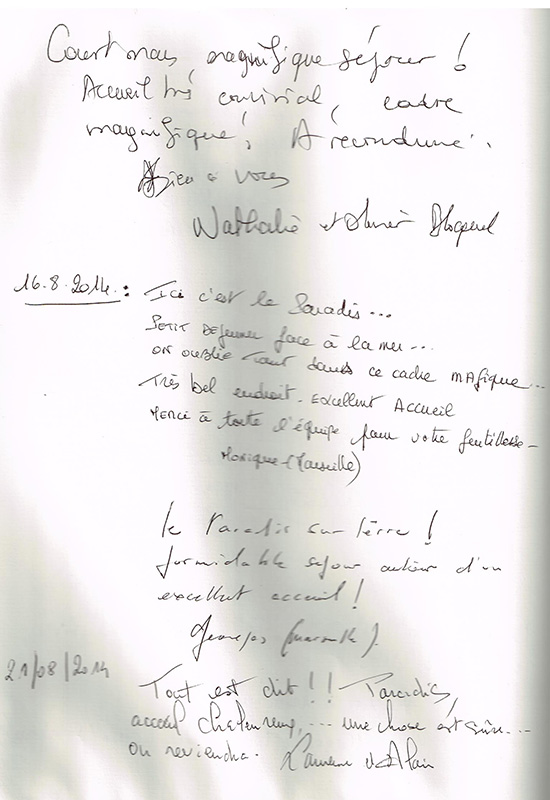 Court mais, magnifique séjour !
Accueil très convivial, cadre
magnifique ! A recondume.
Bien à vous
Nathalie et Olivier
16.8.2014. : Ici c'est le Paradis...
PETIT DEJeuner face à la mer...
ON OUBLIE Tout dans ce cadre MAGique...
Très bel endroit. EXCellent ACCueil
MERCI à toute l'équipe pour votre gentillesse -
Monique (Marseille)
le Paradis sur terre !
formidable sejour autour d'un
excellent accueil !
Georges (Marseille).
21/08/2014
Tout est dit !! Paradis,
accueil chaleureux, ... une chose est sûre...
on reviendra. Laurence et Alain